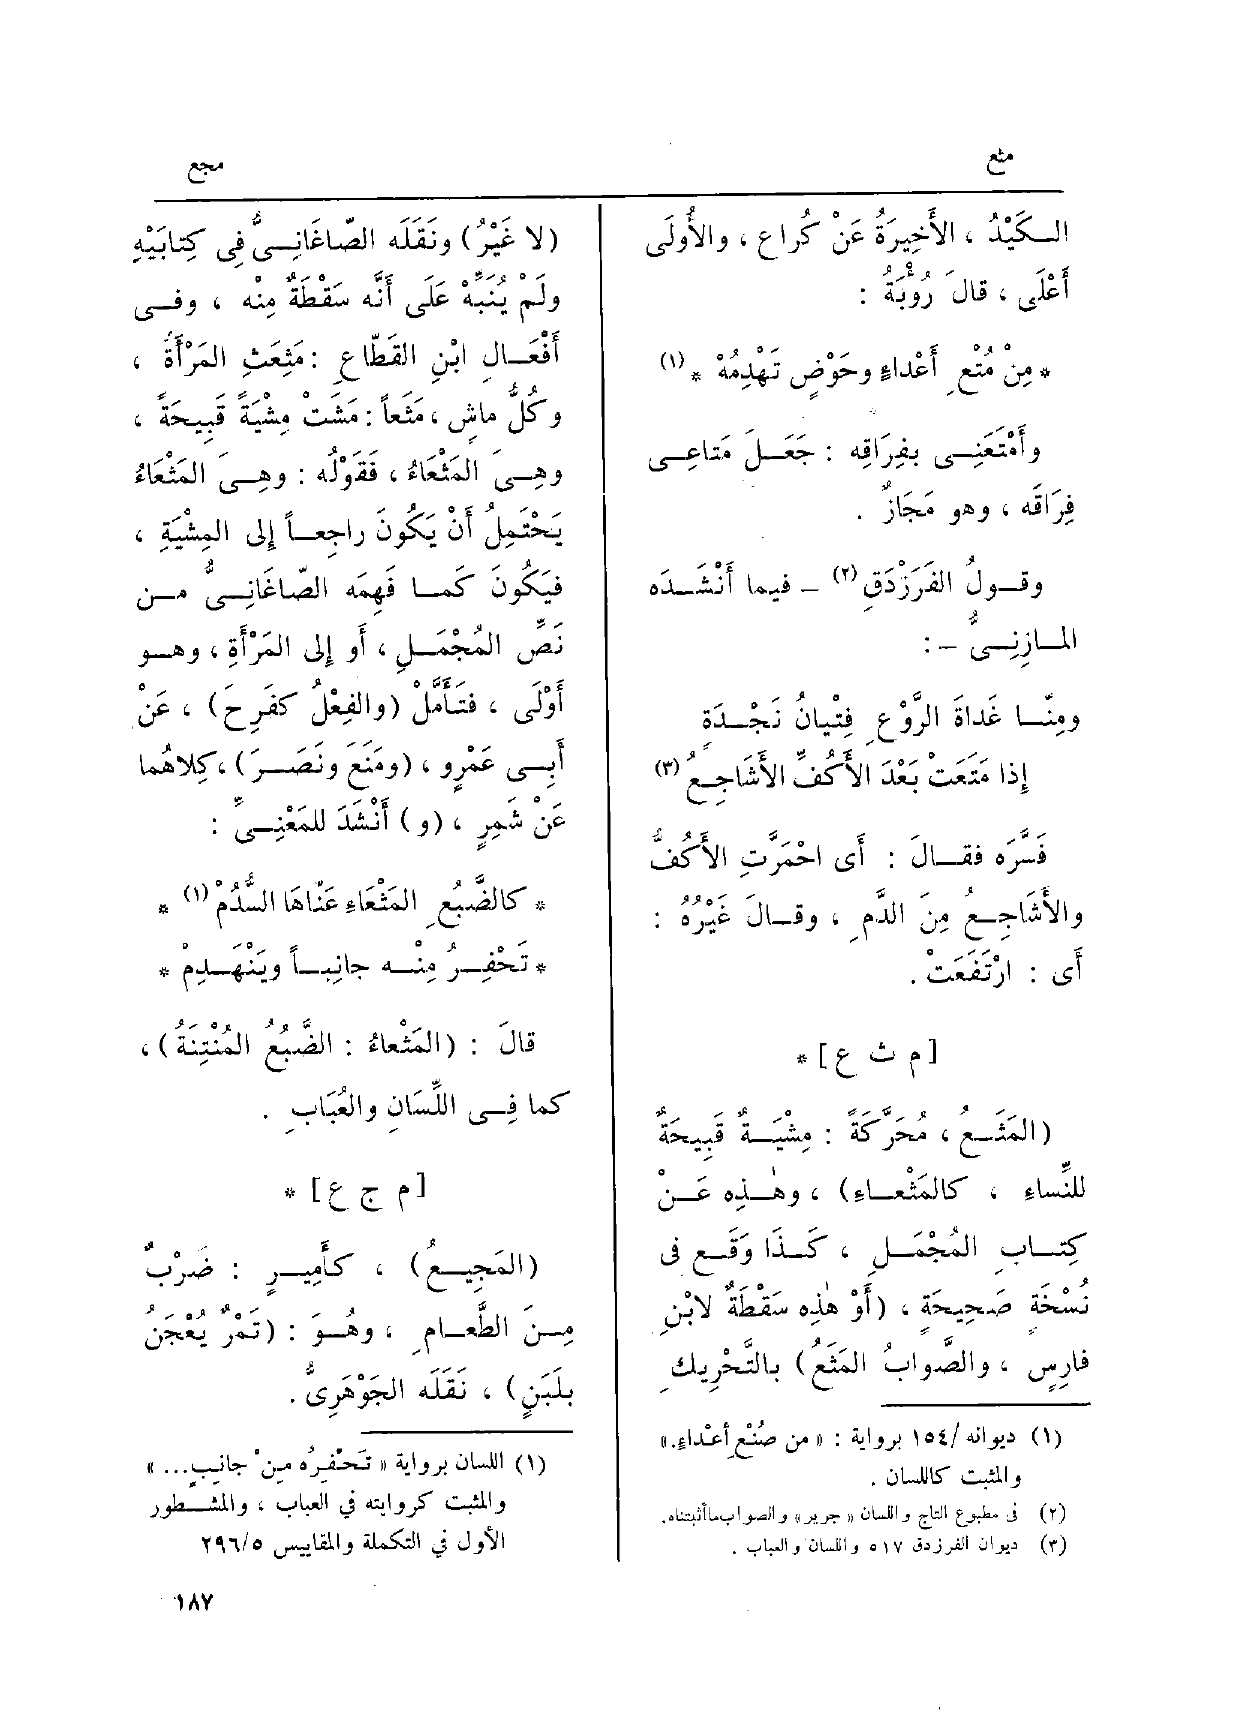 مثع
مجع
الـكَيْدُ ، الأَخِيرَةُ عَنْ كُراع ، والأُولَى
أَعْلَى ، قالَ رُؤْبَةُ :
* مِنْ مُتْعِ أَعْداءٍ وحَوْضٍ تَهْدِمُهْ * (١)
وأَمْتَعَنِـى بفِرَاقِه : جَعَـلَ مَتاعِـى
فِرَاقَه ، وهو مَجَازٌ .
وقـولُ الفَرَزْدَقِ (٢) – فيما أَنْشَـدَه
المـازِنِـىُّ – :
ومِنَّـا غَداةَ الرَّوْعِ فِتْيانُ نَجْـدَةٍ
إذا مَتَعَتْ بَعْدَ الأَكُفِّ الأَشَاجِـعُ (٣)
فَسَّرَه فقـالَ : أَى احْمَرَّتِ الأَكُفُّ
والأَشَاجِـعُ مِنَ الدَّمِ ، وقـالَ غَيْرُهُ :
أَى : ارْتَفَعَتْ .
[ م ث ع ] *
(المَثَـعُ ، مُحَرَّكَةً : مِشْيَـةٌ قَبِيحَةٌ
للنِّساءِ ، كالمَثْعـاءِ) ، وهٰـذِه عَـنْ
كِتـابِ المُجْمَـلِ ، كَـذَا وَقَـع فى
نُسْخَةٍ صَحِيحَةٍ ، (أَوْ هٰذِه سَقْطَةٌ لابْنِ
فارِسٍ ، والصَّوابُ المَثَعُ) بالتَّحْرِيكِ
(١) ديوانه /١٥٤ برواية : « من صُنْعِ أَعْداءٍ. »
والمثبت كاللسان .
(٢) فى مطبوع التاج واللسان « جرير » والصواب ما أثبتناه.
(٣) ديوان الفرزدق ٥١٧ واللسان والعباب .
(لا غَيْرُ) ونَقَلَه الصّاغَانِـىُّ فِى كِتابَيْهِ
ولَمْ يُنَبِّهْ عَلَى أَنَّه سَقْطَةٌ مِنْه ، وفـى
أَفْعَـالِ ابْنِ القَطّاعِ : مَثِعَتِ المَرْأَةُ ،
وكُلُّ ماشٍ ، مَثَعاً : مَشَتْ مِشْيَةً قَبِيحَةً ،
وهِـىَ المَثْعَاءُ ، فَقَوْلُه : وهِـىَ المَثْعَاءُ
يَحْتَمِلُ أَنْ يَكُونَ راجِعـاً إلى المِشْيَةِ ،
فيَكُونَ كَمـا فَهِمَه الصّاغَانِـىُّ مـن
نَصِّ المُجْمَـلِ ، أَو إلى المَرْأَةِ ، وهـو
أَوْلَى ، فتَأَمَّلْ (والفِعْلُ كفَرِحَ) ، عَنْ
أَبِـى عَمْرٍو ، (ومَنَعَ ونَصَـرَ) ، كِلاهُما
عَنْ شَمِرٍ ، (و) أَنْشَدَ للمَعْنِـىِّ :
* كالضَّبُعِ المَثْعَاءِ عَنّاهَا السُّدُمْ (١) *
* تَحْفِـرُ مِنْـه جانِبـاً ويَنْهَـدِمْ *
قالَ : (المَثْعاءُ : الضَّبُعُ المُنْتِنَةُ) ،
كما فِـى اللِّسَانِ والعُبَابِ .
[ م ج ع ] *
(المَجِيـعُ) ، كأَمِيـرٍ : ضَرْبٌ
مِـنَ الطَّعـامِ ، وهُـوَ : (تَمْرٌ يُعْجَنُ
بلَبَنٍ) ، نَقَلَه الجَوْهَرِىُّ .
(١) اللسان برواية « تَحْفِـرُه مِـنْ جانِبٍ ... »
والمثبت كروايته في العباب ، والمشـطور
الأول في التكملة والمقاييس ٢٩٦/٥
١٨٧